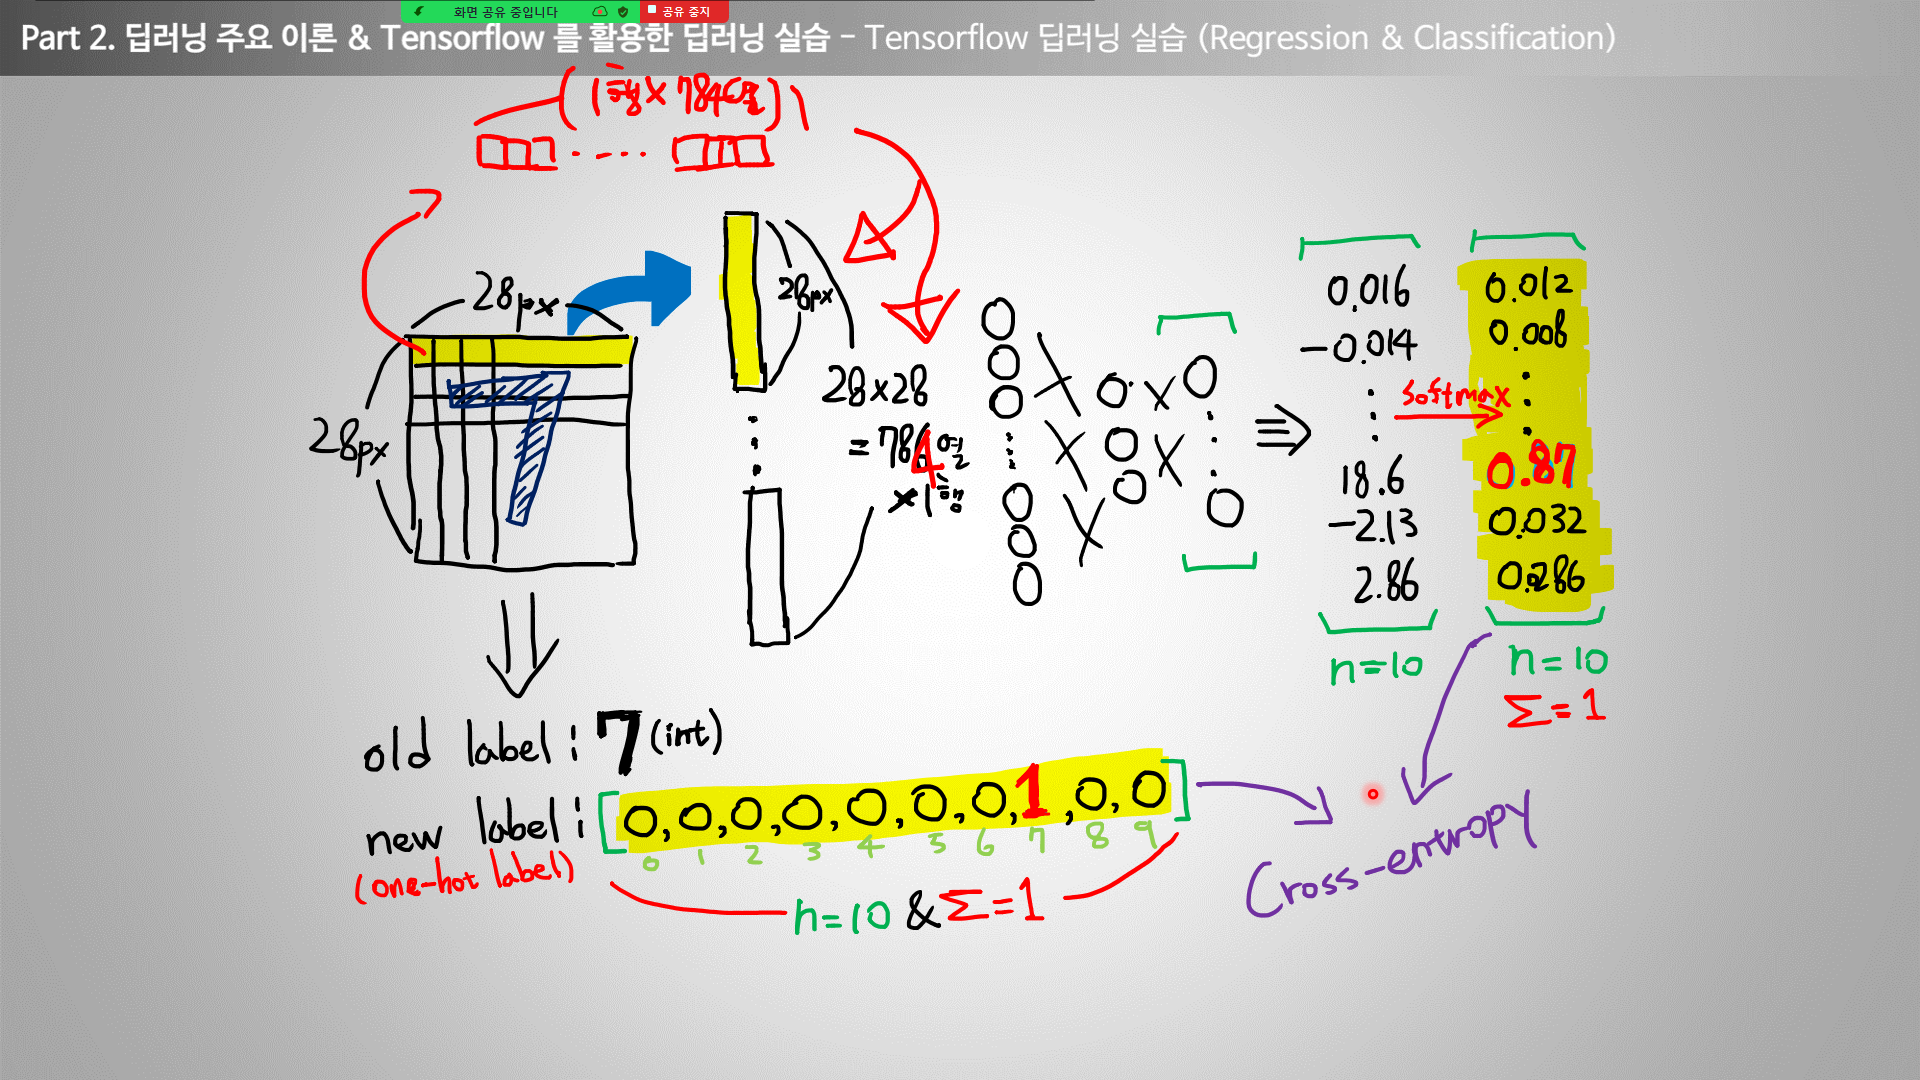 화면 공유 중입니다
공유 중지
Part 2. 딥러닝 주요 이론 & Tensorflow 를 활용한 딥러닝 실습 - Tensorflow 딥러닝 실습 (Regression & Classification)
(1행 x 784열)
28px
28px
28px
28x28
= 784열
x1행
0.016
-0.014
18.6
-2.13
2.86
n=10
softmax
0.012
0.008
0.87
0.032
0.286
n=10
Σ=1
old label : 7 (int)
new label : [0, 0, 0, 0, 0, 0, 0, 1, 0, 0]
0 1 2 3 4 5 6 7 8 9
(one-hot label)
n=10 & Σ=1
Cross-entropy